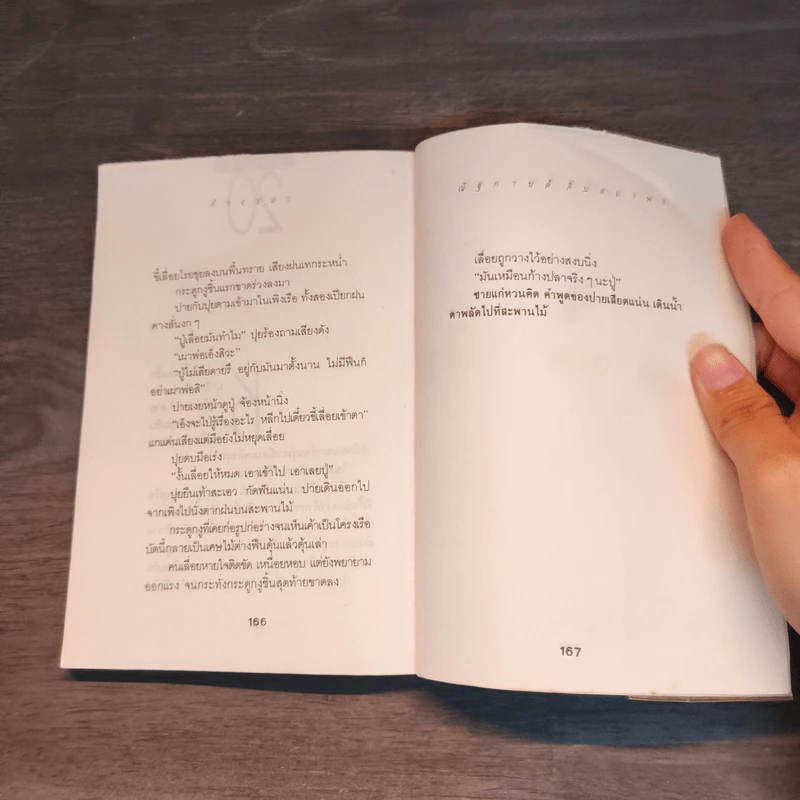 ขี้เลื่อยโรยขุยลงบนพื้นทราย เสียงฝนเทกระหน่ำ
กระดูกงูชิ้นแรกขาดร่วงลงมา
ปายกับปุยตามเข้ามาในเพิงเรือ ทั้งสองเปียกฝน
คางสั่นงก ๆ
“ปู่เลื่อยมันทำไม” ปุยร้องถามเสียงดัง
“เผาพ่อเอ็งสิวะ”
“ปู่ไม่เสียดายรึ อยู่กับมันมาตั้งนาน ไม่มีฟืนก็
อย่าเผาพ่อสิ”
ปายเงยหน้าดูปู่ จ้องหน้านิ่ง
“เอ็งจะไปรู้เรื่องอะไร หลีกไปเดี๋ยวขี้เลื่อยเข้าตา”
แกแค่นเสียงแต่มือยังไม่หยุดเลื่อย
ปุยตบมือเร่ง
“งั้นเลื่อยให้หมด เอาเข้าไป เอาเลยปู่”
ปุยยืนเท้าสะเอว กัดฟันแน่น ปายเดินออกไป
จากเพิงไปนั่งตากฝนบนสะพานไม้
กระดูกงูที่เคยก่อรูปก่อร่างจนเห็นเค้าเป็นโครงเรือ
บัดนี้กลายเป็นเศษไม้ต่างฟืนดุ้นแล้วดุ้นเล่า
คนเลื่อยหายใจติดขัด เหนื่อยหอบ แต่ยังพยายาม
ออกแรง จนกระทั่งกระดูกงูชิ้นสุดท้ายขาดลง
166
เลื่อยถูกวางไว้อย่างสงบนิ่ง
“มันเหมือนก้างปลาจริง ๆ นะปู่”
ชายแก่หวนคิด คำพูดของปายเสียดแน่น เดินน้ำ
ตาพลัดไปที่สะพานไม้
167